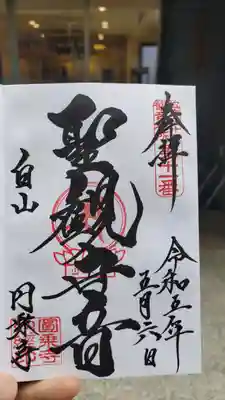 奉拝
聖観世音
白山
円乗寺
令和五年
五月六日
圓乗寺